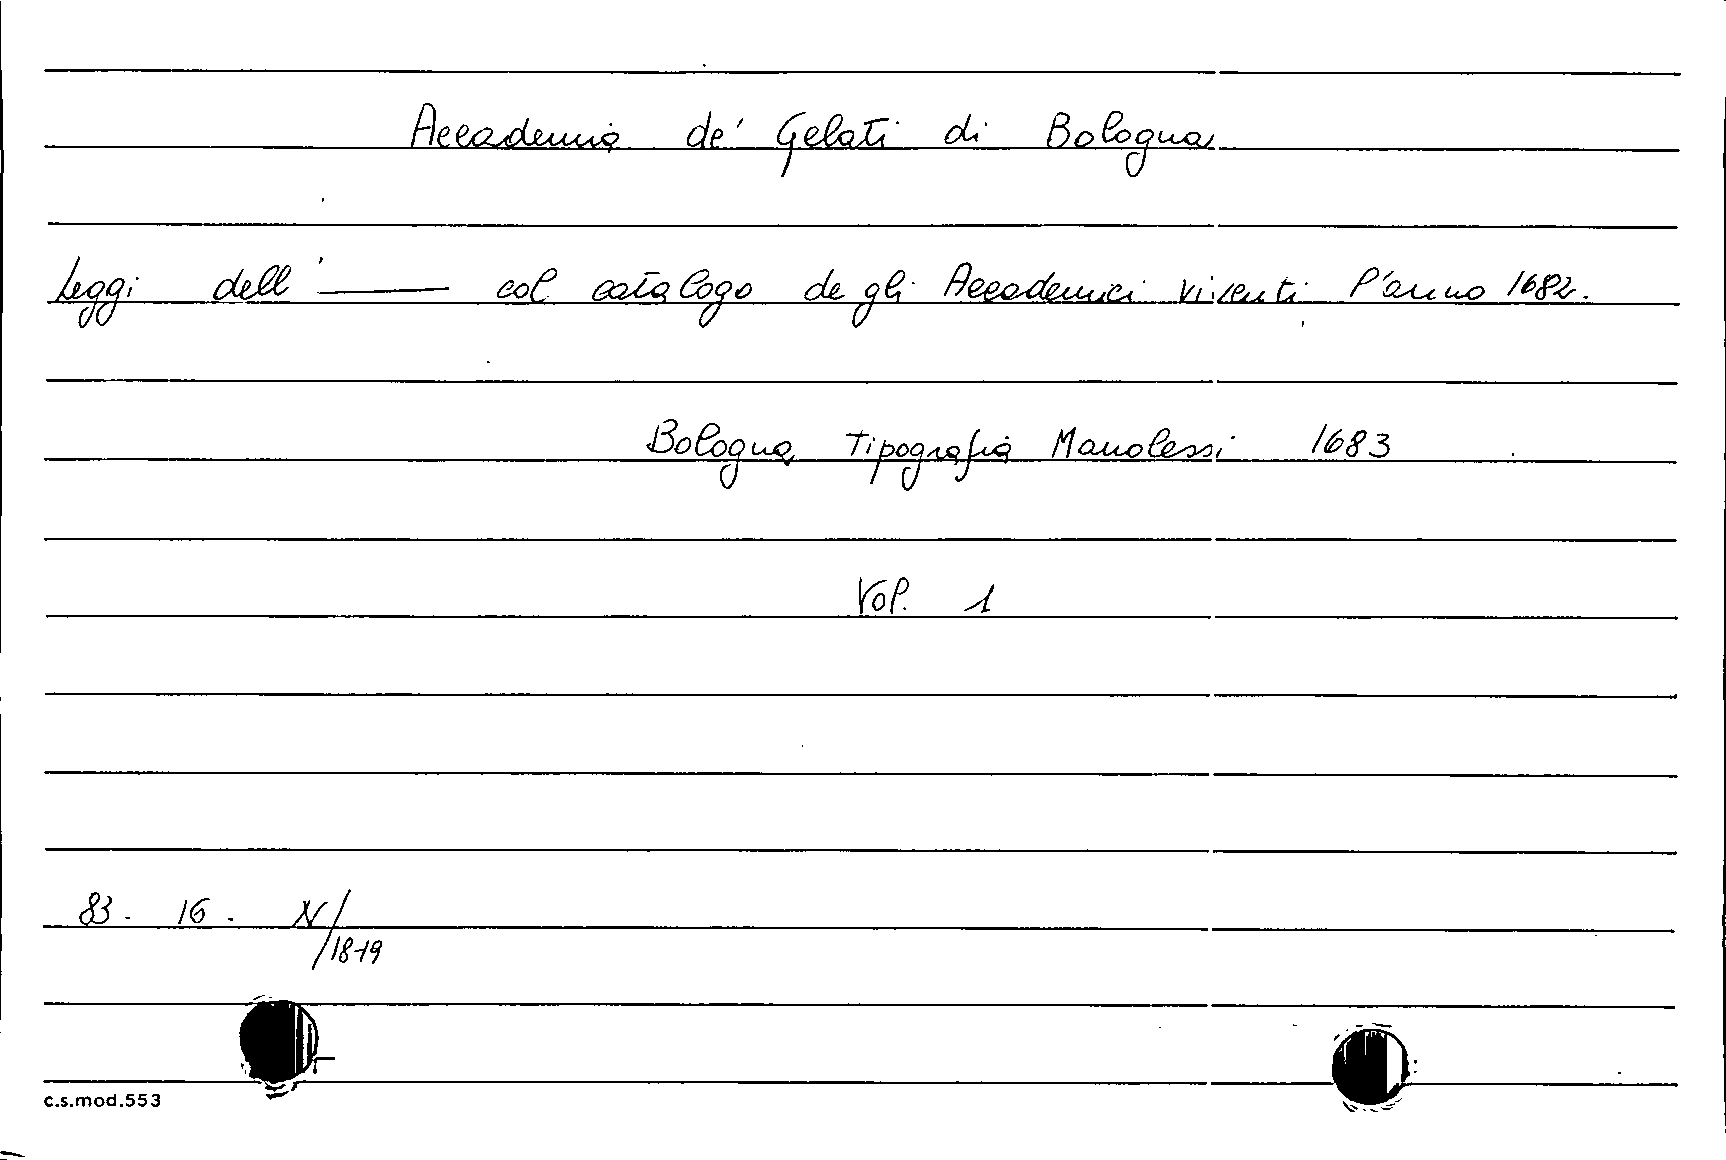 Accademia de' Gelati di Bologna
Leggi dell' —— col catalogo de gli Accademici viventi l'anno 1682.
Bologna Tipografia Manolessi 1683
Vol. 1
83. 16. N/
18-19
c.s.mod.553